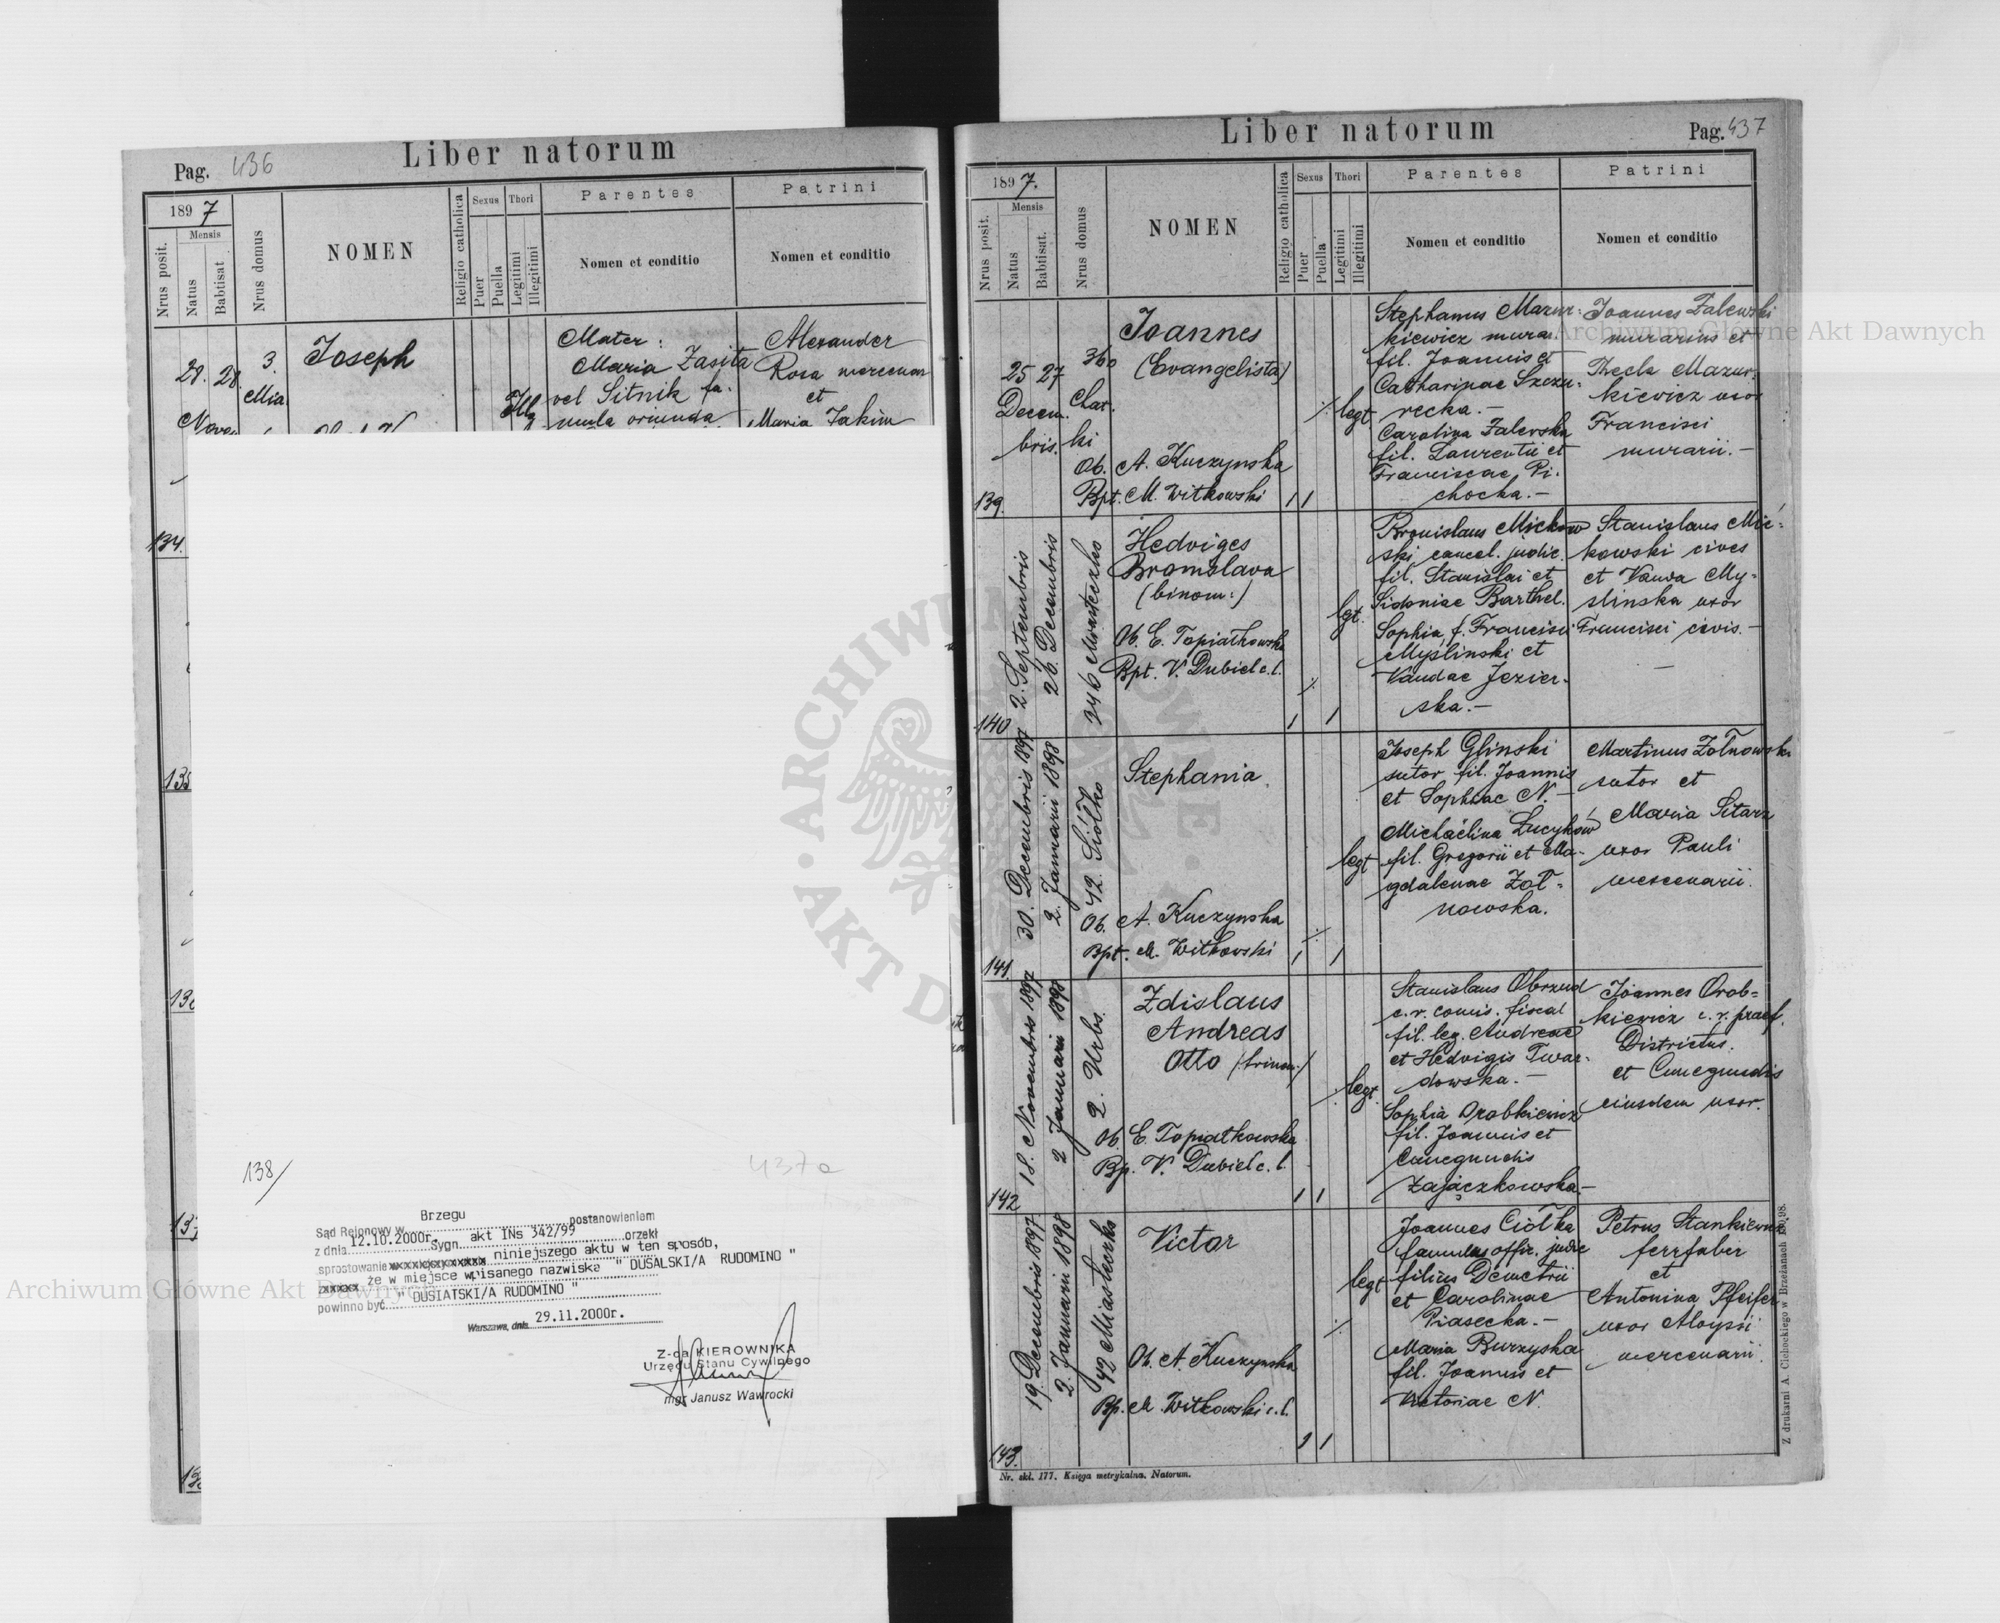 Pag. 436
Liber natorum
1897
Nrus posit.
Mensis
Natus
Babtisat.
Nrus domus
NOMEN
Religio catholica
Sexus
Puer
Puella
Thori
Legitimi
Illegitimi
Parentes
Nomen et conditio
Patrini
Nomen et conditio
28. 28.
3.
Mia
Joseph
Illg
Mater:
Maria Zasita
vel Sitnik fa-
mula oriunda
Alexander
Rosa mercenar
et
Maria Jakim
134.
135
137
138/
437a
Sąd Rejonowy w Brzegu postanowieniem
z dnia 12.10.2000r. Sygn. akt INs 342/99 orzekł
sprostowanie xxxxxxxxxxxxx niniejszego aktu w ten sposób,
że w miejsce wpisanego nazwiska " DUSALSKI/A RUDOMINO "
powinno być " DUSIATSKI/A RUDOMINO "
Warszawa, dnia 29.11.2000r.
Z-ca KIEROWNIKA
Urzędu Stanu Cywilnego
mgr Janusz Wawrocki
Liber natorum
Pag. 437
1897.
Nrus posit.
Mensis
Natus
Babtisat.
Nrus domus
NOMEN
Religio catholica
Sexus
Puer
Puella
Thori
Legitimi
Illegitimi
Parentes
Nomen et conditio
Patrini
Nomen et conditio
139.
25 27
Decem.
bris.
360
Chat.
ki
Joannes
(Evangelista)
Ob. A. Kuczynska
Bpt. M. Witkowski
legt
Stephanus Mazur-
kiewicz murar.
fil. Joannis et
Catharinae Szczu-
recka.-
Carolina Zalewska
fil. Laurentii et
Franciscae Pi-
chocka.-
Joannes Zalewski
murarius et
Thecla Mazur-
kiewicz uxor
Francisci
murarii.-
140
2. Septembris
26 Decembris
246 Miasteczko
Hedviges
Bronislava
(binom:)
Ob. E. Topiatkowska
Bpt. V. Dubiel c. l.
lgt.
Bronislaus Mickow
ski cancel. judic.
fil. Stanislai et
Sidoniae Barthel.
Sophia, f. Francisci
Myślinski et
Vandae Jezier-
ska.-
Stanislaus Mic-
kowski cives
et Vanda My-
slinska uxor
Francisci civis.-
141.
30. Decembris 1897
2. Januarii 1898
42. Siółko
Stephania
Ob. A. Kuczynska
Bpt. M. Witkowski
legt
Joseph Glinski
sutor fil. Joannis
et Sophiae N.-
Michaëlina Łucyków
fil. Gregorii et Ma-
gdalenae Żoł-
nowska.
Martinus Żołnowski
sutor et
Maria Sitarz
uxor Pauli
mercenarii.
142
18. Novembris 1897
2 Januarii 1898
2. Urbs.
Zdislaus
Andreas
Otto (trinom:)
Ob E. Topiatkowska
Bp. V. Dubiel c. l.
legt.
Stanislaus Obrzud
c. r. comis. fiscal
fil. leg. Andreae
et Hedvigis Twar-
dowska.-
Sophia Orobkiewicz
fil. Joannis et
Cunegundis
Zajączkowska.-
Joannes Orob-
kiewicz c. r. praef.
Districtus.
et Cunegundis
eiusdem uxor.
143.
19. Decembris 1897
2. Januarii 1898
42 Miasteczko
Victor
Ob. A. Kuczynska
Bp. M. Witkowski c. l.
legt
Joannes Ciołka
famulus offic. judic
filius Demetrii
et Carolinae
Piasecka.-
Maria Burzyska
fil. Joannis et
Victoriae N.
Petrus Stankiewicz
ferrfaber
et
Antonina Pfeifer
uxor Aloysii
mercenarii.
Nr. skl. 177. Księga metrykalna. Natorum.
Z drukarni A. Cichockiego w Brzeżanach
Archiwum Główne Akt Dawnych
Archiwum Główne Akt Dawnych